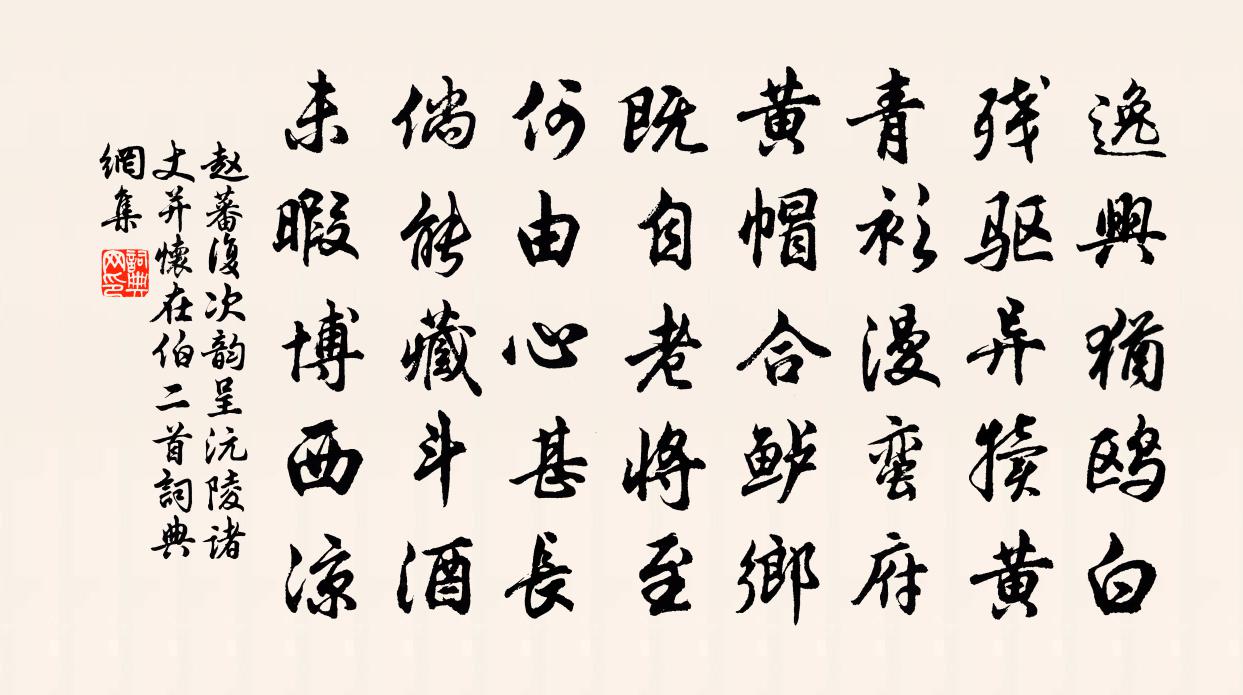 逸興猶鸥白
残驱异犊黄
青衫漫蛮府
黄帽合鲈鄉
既自老將至
何由心甚長
倘能藏斗酒
未暇博西凉
赵蕃復次韵呈沅陵诸
丈并懷在伯二首詞典
網集
詞典网印